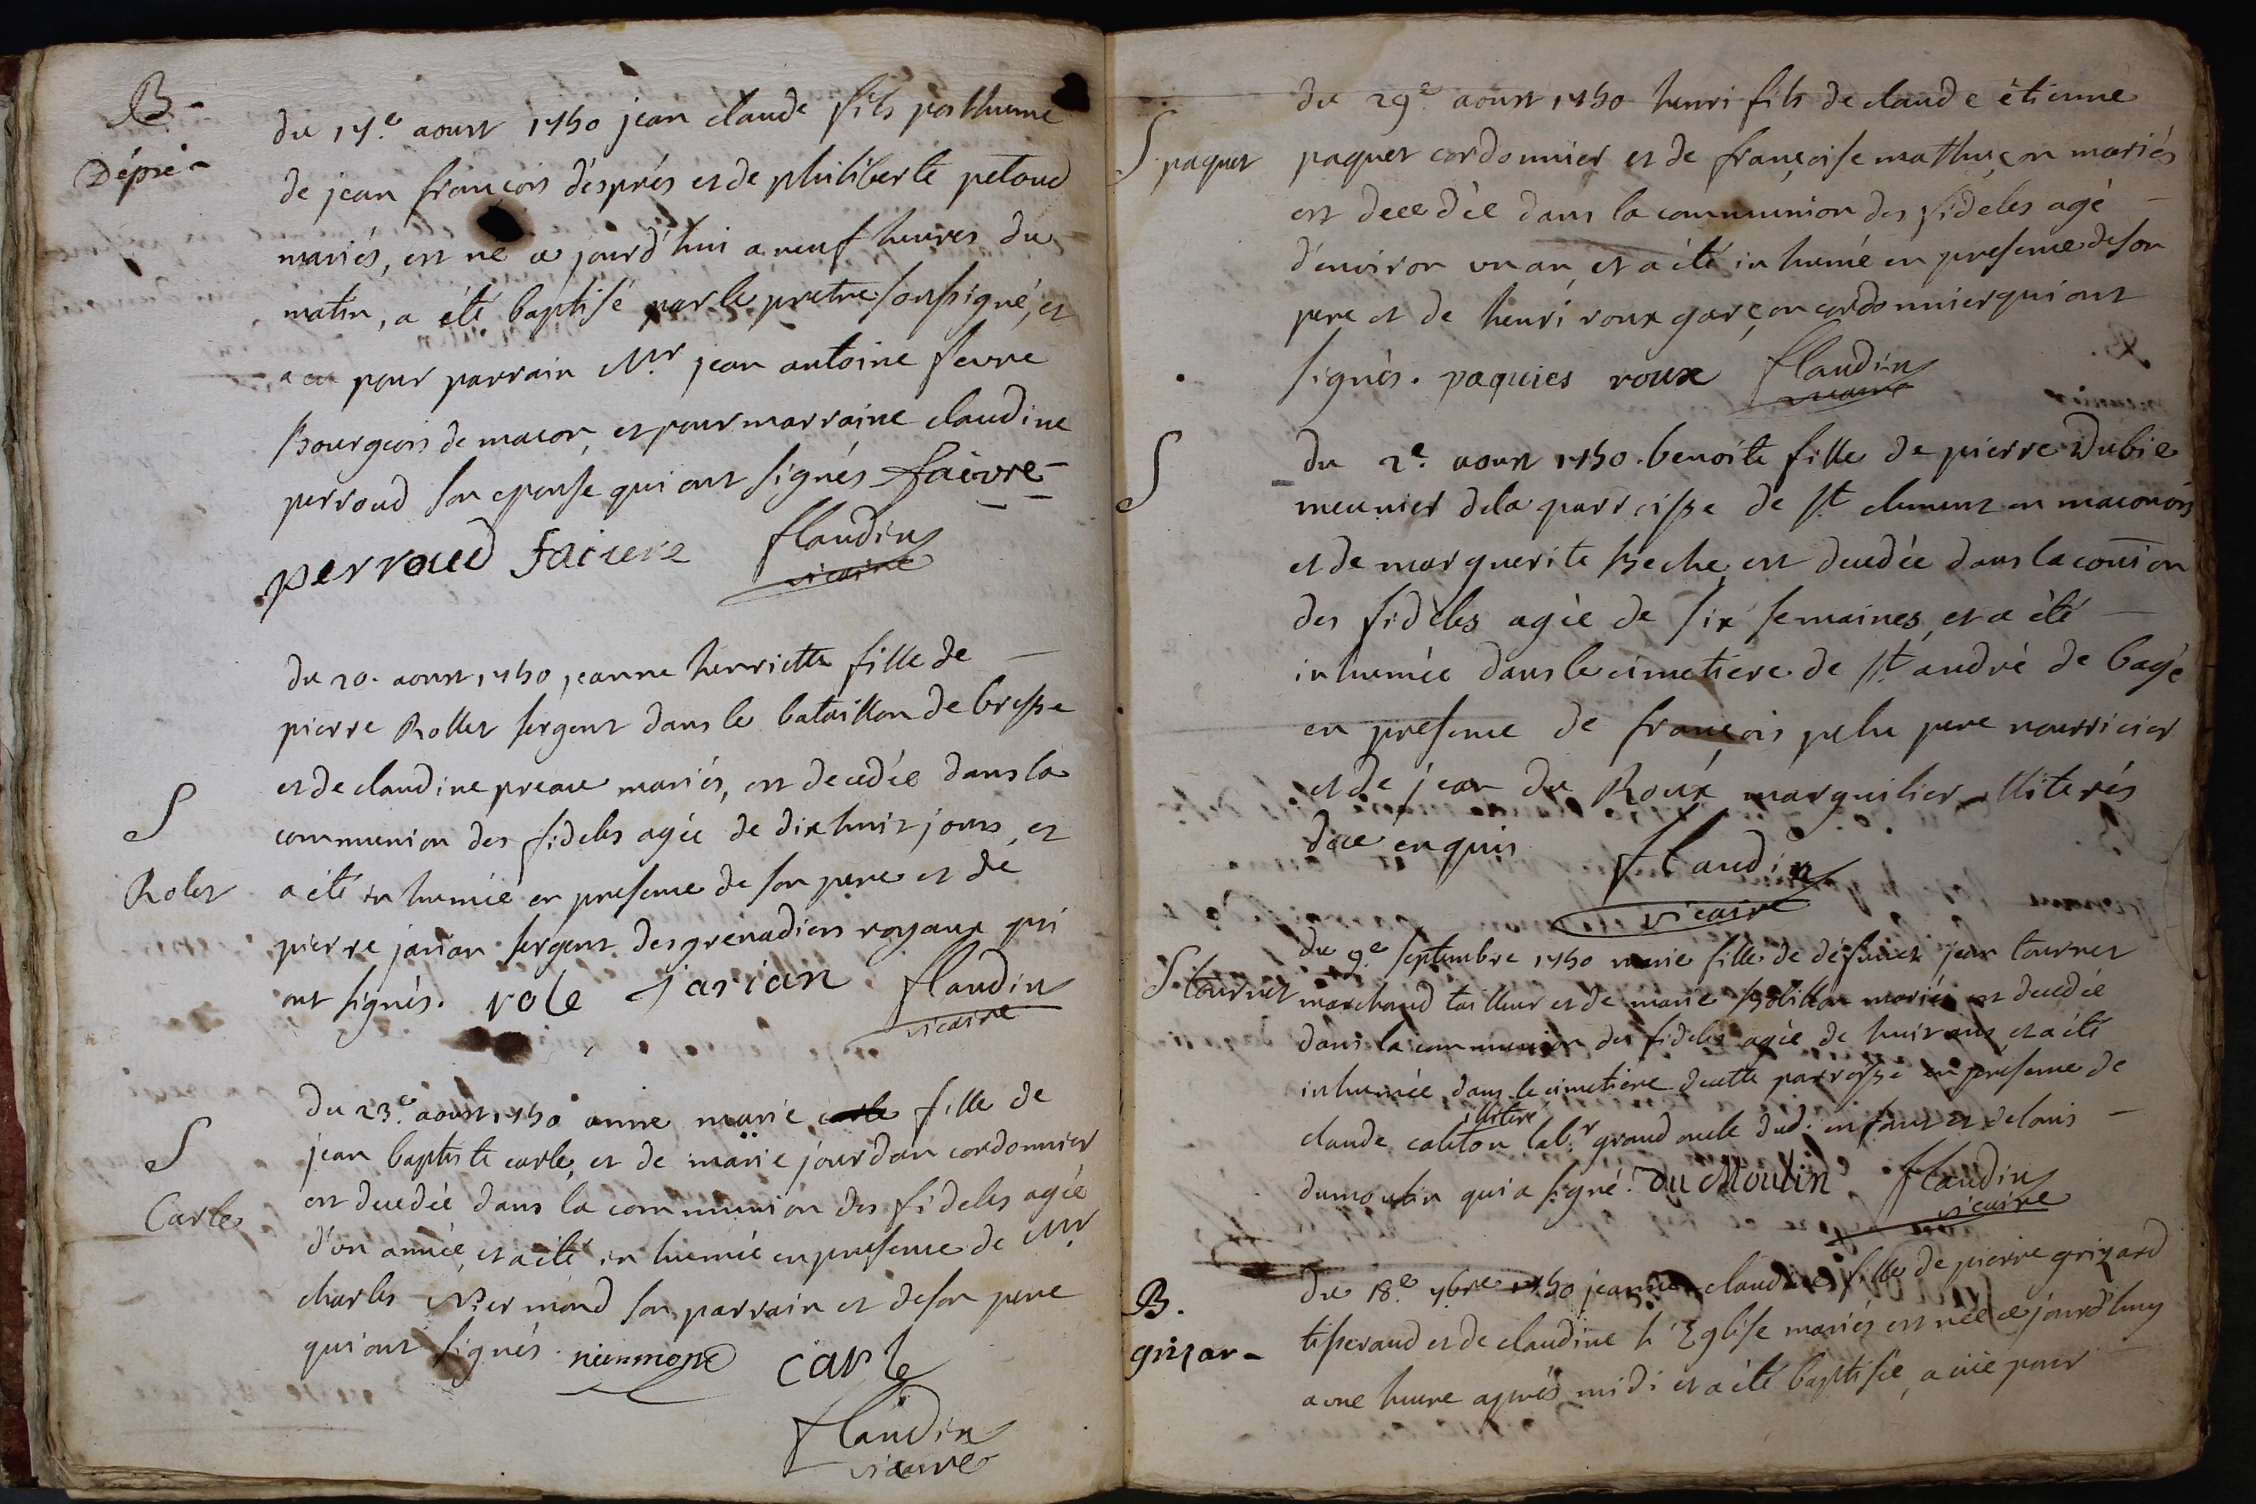 B.
Dépré
du 17.e aoust 1750 jean claude fils posthume
de jean françois désprés et de philiberte petoud
mariés, est né ce jourd'hui a neuf heures du
matin, a été baptisé par le pretre soussigné, et
a eu pour parrain Mr. jean antoine fevre
bourgeois de macon, et pour marraine claudine
perroud son epouse qui ont signés faivre
perroud faivre flandin
vicaire
S
Rolet
du 20. aoust 1750 jeanne henriette fille de
pierre Rollet sergent dans le bataillon de bresse
et de claudine preaue mariés, est decedée dans la
communion des fideles agée de dix huit jours, et
a été inhumée en presence de son pere et de
pierre jarian sergent des grenadiers royaux qui
ont signés. role jarian flandin
vicaire
S
Carle
du 23.e aoust 1750 anne marie carle fille de
jean baptiste carle, et de marie jourdan cordonnier
est decedée dans la communion des fideles agée
d'un année, et a été inhumée en presence de Mr
charles Niermond son parrain et de son pere
qui ont signés. niermond carle
flandin
vicaire
S paquet
du 29.e aoust 1750 henri fils de claude étienne
paquet cordonnier et de françoise mathuçon mariés
est decedée dans la communion des fideles agé
d'environ un an, et a été inhumé en presence de son
pere et de henri roux garçon cordonnier qui ont
signés. paquies roux flandin
vicaire
S
du 2.e aoust 1750. benoite fille de pierre Dubie
meunier dela parroisse de st. clement en maconois
et de marguerite beche, est decedée dans la coñion
des fideles agée de six semaines, et a été
inhumée dans le cimetiere de st. andré de bagé
en presence de françois pelu pere nourricier
et de jean du Roux marguilier illiterés
de ce enquis flandin
vicaire
S tournet
du 9.e septembre 1750 marie fille de défunct jean tournet
marchand tailleur et de marie bolillon mariés est decedée
dans la communion des fideles agée de huit ans et a été
inhumée dans le cimetiere decette parroisse en présence de
illiteré
claude caliton lab.r grand oncle dud. enfant et de louis
dumoulin qui a signé. du Moulin flandin
vicaire
B.
grizar
du 18.e 7bre 1750 jeanne claudine fille de pierre grizard
tisserand et de claudine l'Eglise mariés est née ce jourd'huy
a une heure aprés midi et a été baptisée, a eüe pour